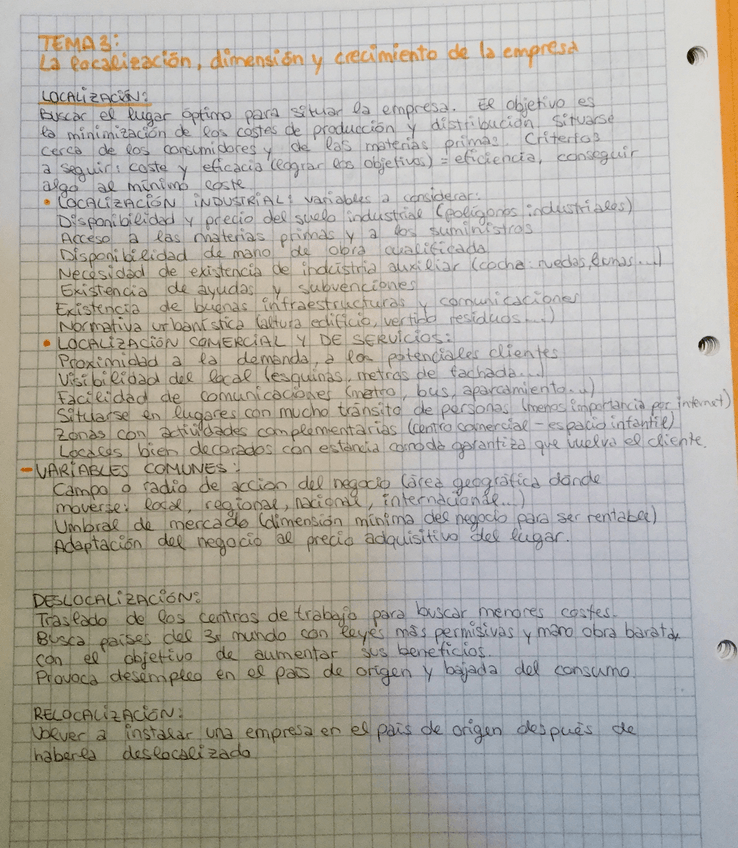 TEMA 3:
La localización, dimensión y crecimiento de la empresa
LOCALIZACIÓN:
Buscar el lugar óptimo para situar la empresa. El objetivo es
la minimización de los costes de producción y distribución. Situarse
cerca de los consumidores y de las materias primas. Criterios
a seguir: coste y eficacia (lograr los objetivos) = eficiencia, conseguir
algo al mínimo coste
• LOCALIZACIÓN INDUSTRIAL: variables a considerar:
Disponibilidad y precio del suelo industrial (polígonos industriales)
Acceso a las materias primas y a los suministros
Disponibilidad de mano de obra cualificada
Necesidad de existencia de industria auxiliar (coche: ruedas, lunas...)
Existencia de ayudas y subvenciones
Existencia de buenas infraestructuras y comunicaciones
Normativa urbanística (altura edificio, vertido residuos...)
• LOCALIZACIÓN COMERCIAL Y DE SERVICIOS:
Proximidad a la demanda, a los potenciales clientes
Visibilidad del local (esquinas, metros de fachada...)
Facilidad de comunicaciones (metro, bus, aparcamiento...)
Situarse en lugares con mucho tránsito de personas (menos importancia por internet)
Zonas con actividades complementarias (centro comercial - espacio infantil)
Locales bien decorados con estancia cómoda garantiza que vuelva el cliente.
- VARIABLES COMUNES:
Campo o radio de accion del negocio (área geográfica donde
moverse: local, regional, nacional, internacional...)
Umbral de mercado (dimensión mínima del negocio para ser rentable)
Adaptación del negocio al precio adquisitivo del lugar.
DESLOCALIZACIÓN:
Traslado de los centros de trabajo para buscar menores costes.
Busca países del 3r mundo con leyes más permisivas y mano obra barata,
con el objetivo de aumentar sus beneficios.
Provoca desempleo en el país de origen y bajada del consumo.
RELOCALIZACIÓN:
Volver a instalar una empresa en el país de origen después de
haberla deslocalizado